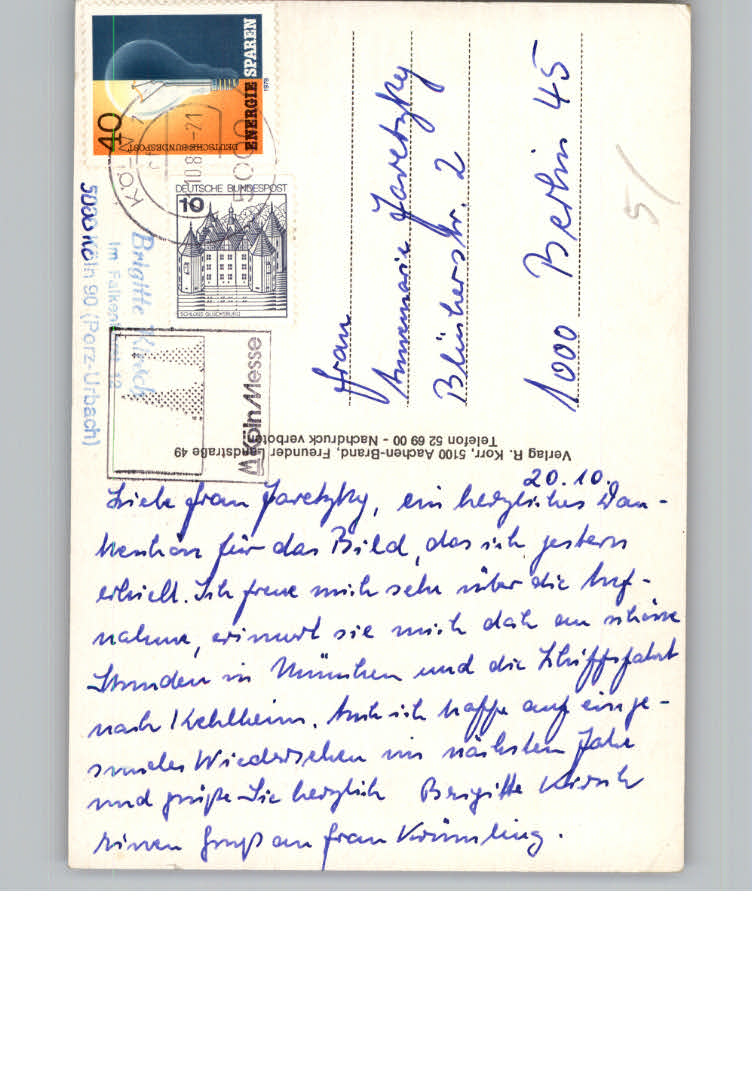 20.10.
Liebe Frau Jaretzky, ein herzliches Dan-
keschön für das Bild, das ich gestern
erhielt. Ich freue mich sehr über die Auf-
nahme, erinnert sie mich doch an schöne
Stunden in München und die Schiffsfahrt
nach Kehlheim. Auch ich hoffe auf ein ge-
sundes Wiedersehen im nächsten Jahr
und grüße Sie herzlich Brigitte Kirsch
einen Gruß an Frau Krümling.
Frau
Annemarie Jaretzky
Blücherstr. 2
1000 Berlin 45
5/
Verlag R. Korr, 5100 Aachen-Brand, Freunder Landstraße 49
Telefon 52 69 00 - Nachdruck verboten
40
DEUTSCHE BUNDESPOST
ENERGIE SPAREN
1979
DEUTSCHE BUNDESPOST
10
SCHLOSS GLÜCKSBURG
KÖLN
5000
10.8
-21
KölnMesse
Brigitte Kirsch
Im
5000 Köln 90 (Porz-Urbach)